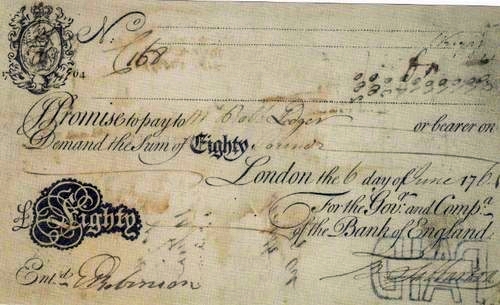 No. C168
1704
I Promise to pay to Mr. Robt. or bearer on
Demand the Sum of Eighty Pounds
London the 6 day of June 176
For the Govr. and Compa.
of the Bank of England
£ Eighty
Entd. Robinson